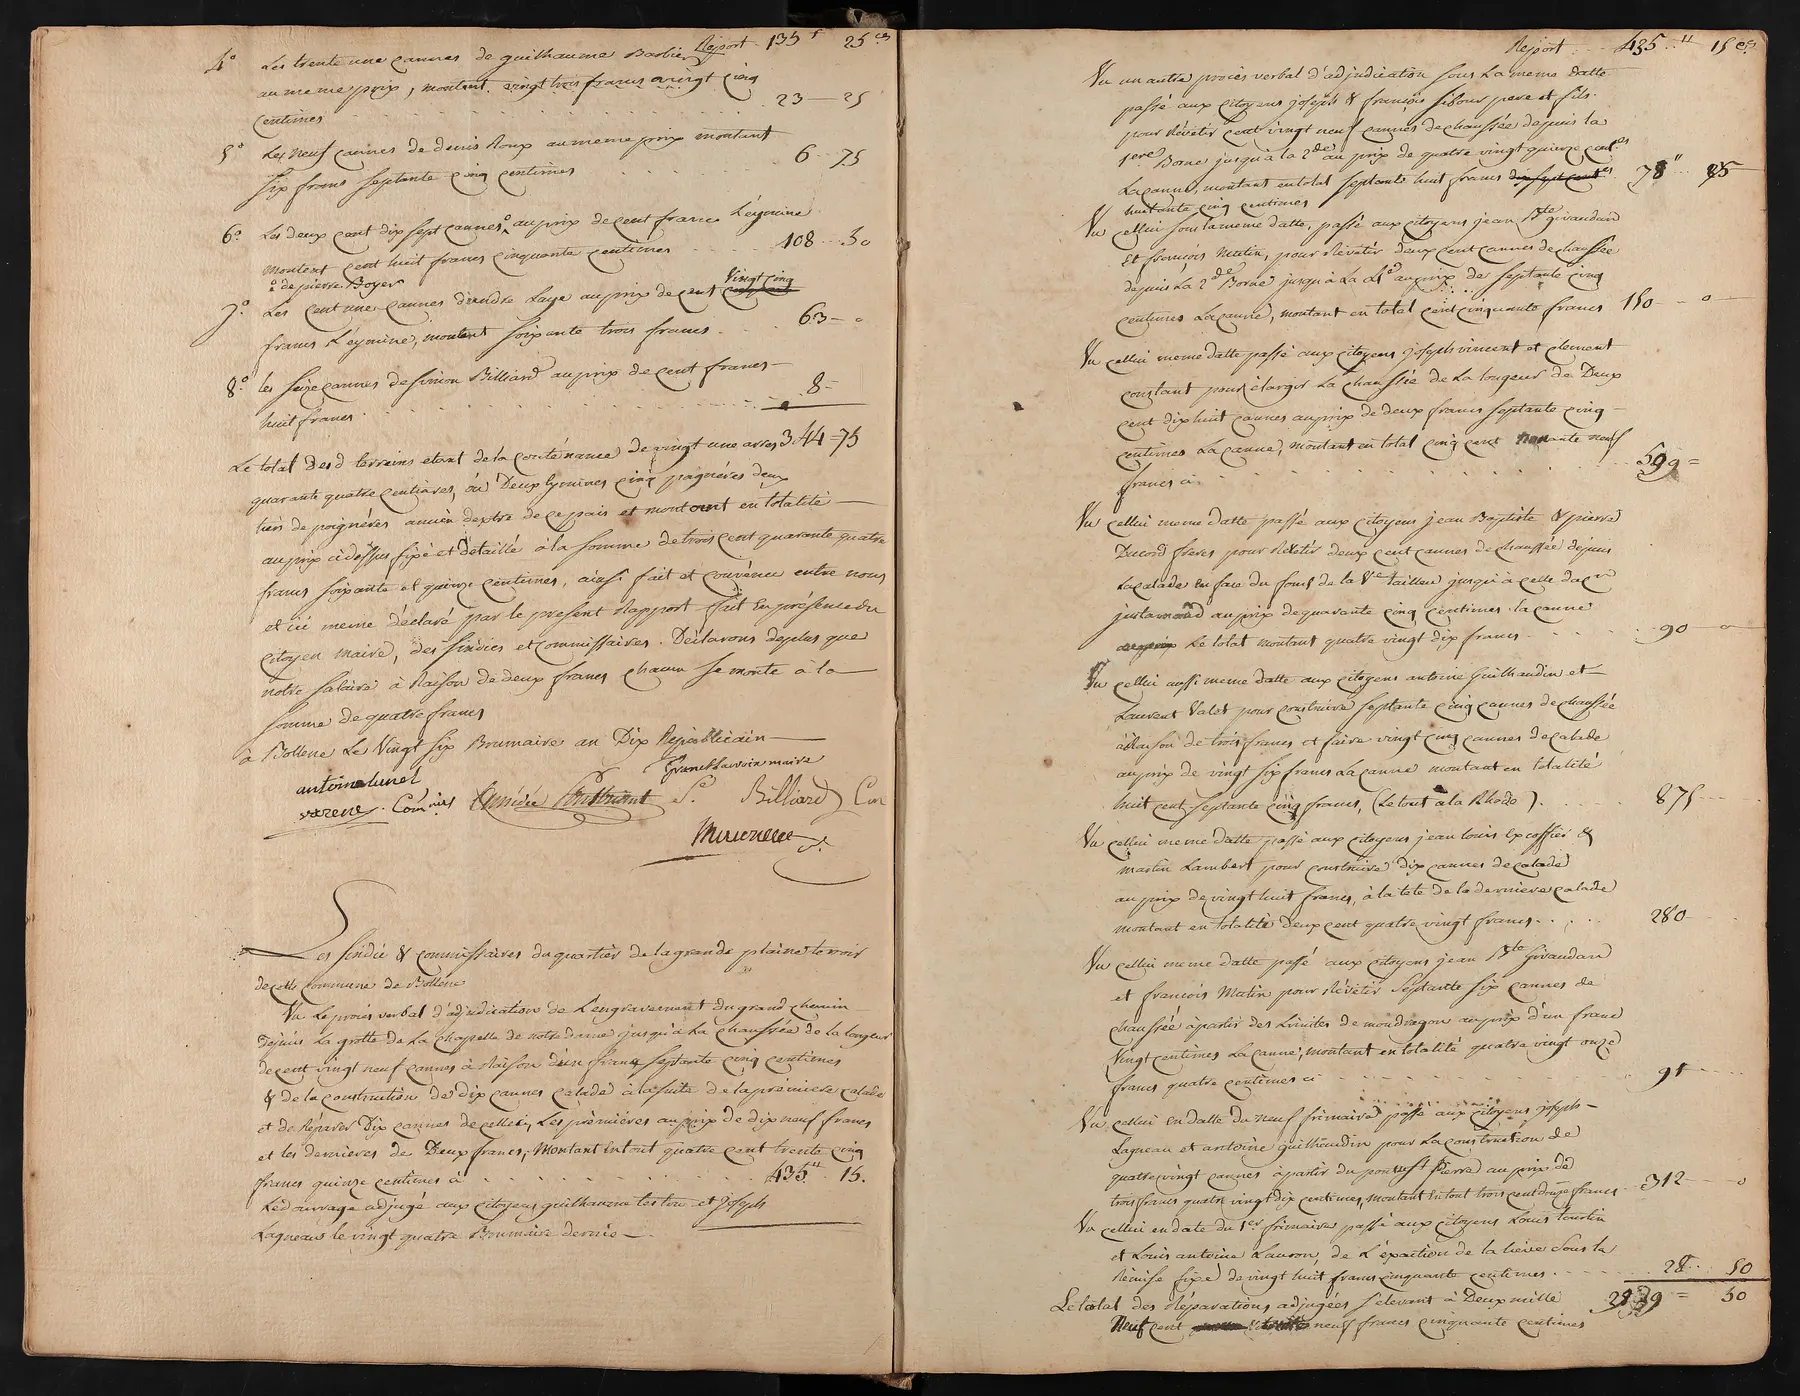 Report 135 f 25 cs
4° Les trente une cannes de guilhaume Barbier
au meme prix, montant vingt trois francs vingt cinq
centimes 23 — 25
5° Les Neuf cannes de denis Roux au meme prix montant
six francs septante cinq centimes 6 — 75
6° Les deux cent dix sept cannes ° au prix de cent francs L'eymine
montent cent huit francs cinquante centimes 108 — 50
° de pierre Boyer
7° Les Cent une cannes d'andre Laye au prix de cent vingt cinq
francs L'eymine, montent soixante trois francs 63 — 0
8° les seize cannes de simon Billiard au prix de cent francs
huit francs 8 =
Le total desd terreins etant de la contenance de vingt une arres 344 = 75
quarante quatre centiares, ou Deux eymines cinq poignéres deux
tiers de poignéres ancien dextre de ce pais et montant en totalité
au prix ci dessus fixé et détaillé à la somme de trois cent quarante quatre
francs soixante et quinze centimes, ainsi fait et convenu entre nous
et ici meme déclaré par le present Rapport fait En présence du
citoyen maire, des sindics et commissaires. Déclarons de plus que
notre salaire à Raison de deux francs chacun se monte à la
somme de quatre francs
à Bollene Le Vingt six Brumaire an Dix Republicain
maire
antoine lunel
Billiard Com
Les sindic & commissaires du quartier de la grande plaine terroir
de cette commune de Bollene
Vu Le procès verbal d'adjudication de L'engravement du grand chemin
Depuis La grotte de La chapelle de notre dame jusqu'à La chaussée de la largeur
de cent vingt neuf cannes à Raison d'un franc septante cinq centimes
& de la construction de dix cannes calade à la suite de la première calade
et de Réparer Dix cannes de celles, Les premières au prix de dix neuf francs
et les dernieres de Deux francs, Montant En tout quatre cent trente cinq
francs quinze centimes ci 435 " 15.
Led ouvrage adjugé aux citoyens guilhaume testou et Joseph
Lagneau le vingt quatre Brumaire dernier
Report 435 " 15 cs
Vu un autre procès verbal d'adjudication sous La meme datte
passé aux citoyens joseph & françois sibour pere et fils
pour Révetir cent vingt neuf cannes de chaussée depuis la
1ere Borne jusqu'à la 2de au prix de quatre vingt quinze centes
La canne, montant en total septante huit francs 78 " 85
huitante cinq centimes
Vu cellui sous la meme datte, passé aux citoyens jean Bte givaudan
Et françois Matin, pour Révetir deux cent cannes de chaussée
depuis La 2de Borne jusqu'à La 4° au prix de septante cinq
centimes La canne, montant en total cent cinquante francs 150 — 0
Vu cellui meme datte passé aux citoyens joseph vincent et clement
constant pour élargir La chaussée de La longeur de Deux
cent dix huit cannes au prix de deux francs septante cinq
centimes La canne, montant en total cinq cent nonante neuf
francs ci 599 =
Vu cellui meme datte passé aux citoyens jean Baptiste & pierre
Ducord freres pour Révetir deux cent cannes de chaussée depuis
La calade En face du fonds de la Ve tailleu jusqu'à celle dacn
justamond au prix de quarante cinq centimes la canne
Le total montant quatre vingt dix francs 90 — 0
Vu cellui aussi meme datte aux citoyens antoine Guilhaudin et
Laurent Valet pour construire septante cinq cannes de chaussée
à Raison de trois francs et faire vingt cinq cannes de calade
au prix de vingt six francs La canne montant en totalité
huit cent septante cinq francs, (Le tout à la Rhode) 875
Vu cellui meme datte passé aux citoyens jean louis Excoffier &
martin Lambert pour construire dix cannes de calade
au prix de vingt huit francs, à la tete de la derniere calade
montant en totalité Deux cent quatre vingt francs 280
Vu cellui meme datte passé aux citoyens jean Bte Givaudan
et françois Matin pour Révetir Septante six cannes de
chaussée à partir des Limites de mondragon au prix d'un franc
Vingt centimes La canne, montant en totalité quatre vingt onze
francs quatre centimes ci 91
Vu cellui en datte du neuf frimaire passé aux citoyens joseph
Lagneau et antoine guilhaudin pour La construction de
quatre vingt cannes à partir du pont st Pierre au prix de
trois francs quatre vingt dix centimes, montant En tout trois cent douze francs 312 — 0
Vu cellui en date du 1er frimaire passé aux citoyens Louis tourtin
et Louis antoine Lauron, de L'exaction de la lieve sous la
Rémise fixe de vingt huit francs cinquante centimes 28 50
Le total des Réparations adjugées s'elevant à Deux mille 2939 = 50
Neuf cent neuf francs cinquante centimes